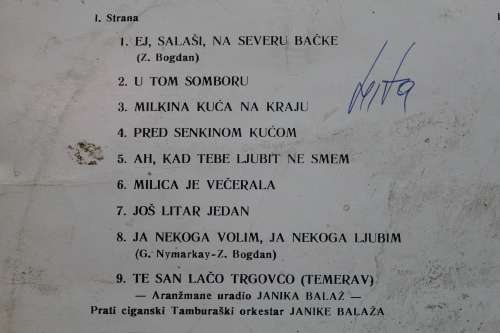 I. Strana
1. EJ, SALAŠI, NA SEVERU BAČKE
(Z. Bogdan)
2. U TOM SOMBORU
3. MILKINA KUĆA NA KRAJU
4. PRED SENKINOM KUĆOM
5. AH, KAD TEBE LJUBIT NE SMEM
6. MILICA JE VEČERALA
7. JOŠ LITAR JEDAN
8. JA NEKOGA VOLIM, JA NEKOGA LJUBIM
(G. Nymarkay-Z. Bogdan)
9. TE SAN LAČO TRGOVCO (TEMERAV)
— Aranžmane uradio JANIKA BALAŽ —
Prati ciganski Tamburaški orkestar JANIKE BALAŽA